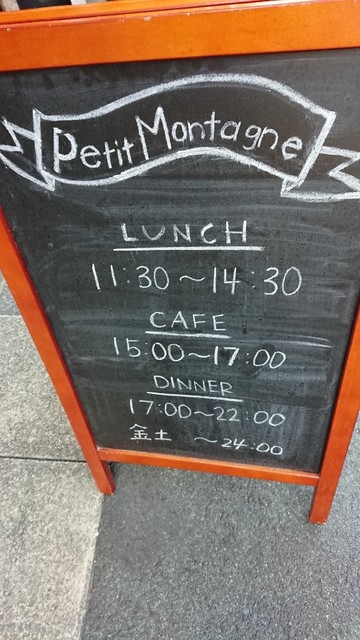 Petit Montagne
LUNCH
11:30～14:30
CAFE
15:00～17:00
DINNER
17:00～22:00
金土 ～24:00